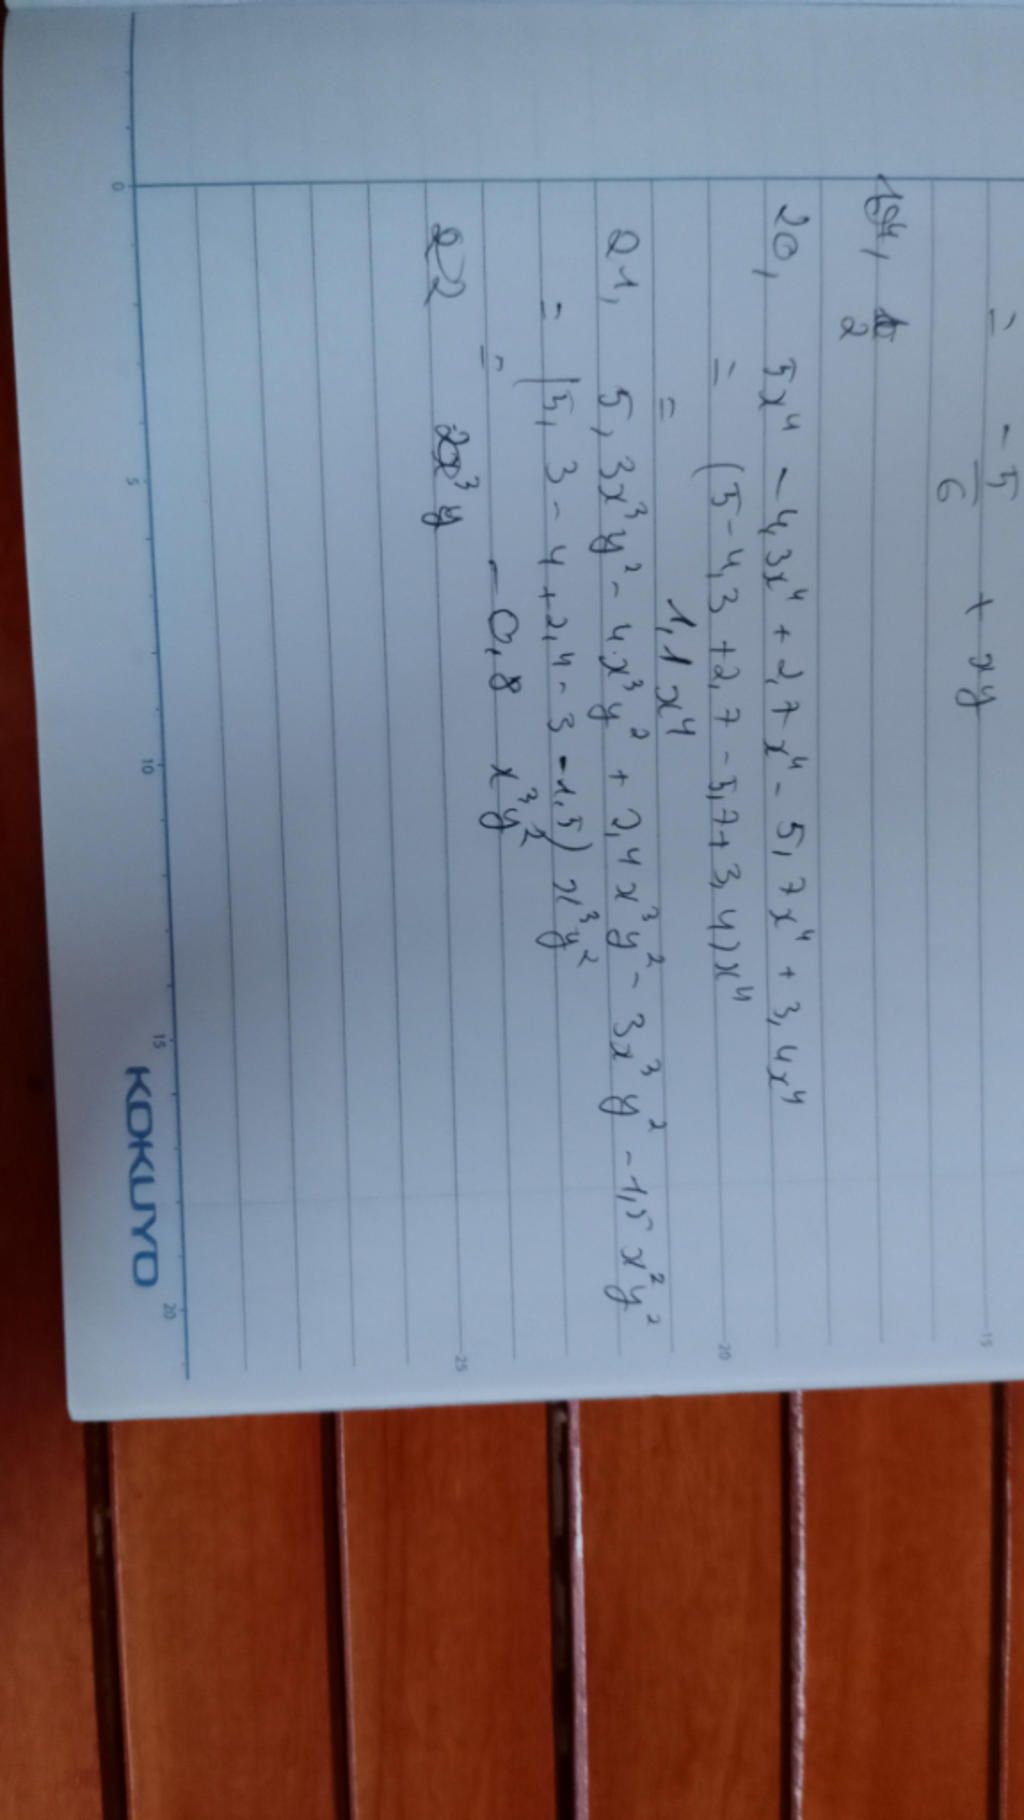 = - 5/6 + xy
20, 5x⁴ - 4,3x⁴ + 2,7x⁴ - 5,7x⁴ + 3,4x⁴
= (5 - 4,3 + 2,7 - 5,7 + 3,4)x⁴
= 1,1x⁴
21, 5,3x³y² - 4x³y² + 2,4x³y² - 3x³y² - 1,5x²y²
= (5,3 - 4 + 2,4 - 3 - 1,5)x³y²
= -0,8 x³y²
22 2x³y
KOKUYO
0 5 10 15 20
15
20
25